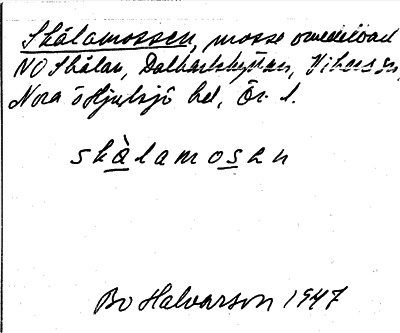 Skålamossen, mosse omedelbart
NO Skålan, Dalkarlshyttan, Vikers sn,
Nora o Hjulsjö bd, Ör. l.
skàlamosen
Bo Halvarson 1947